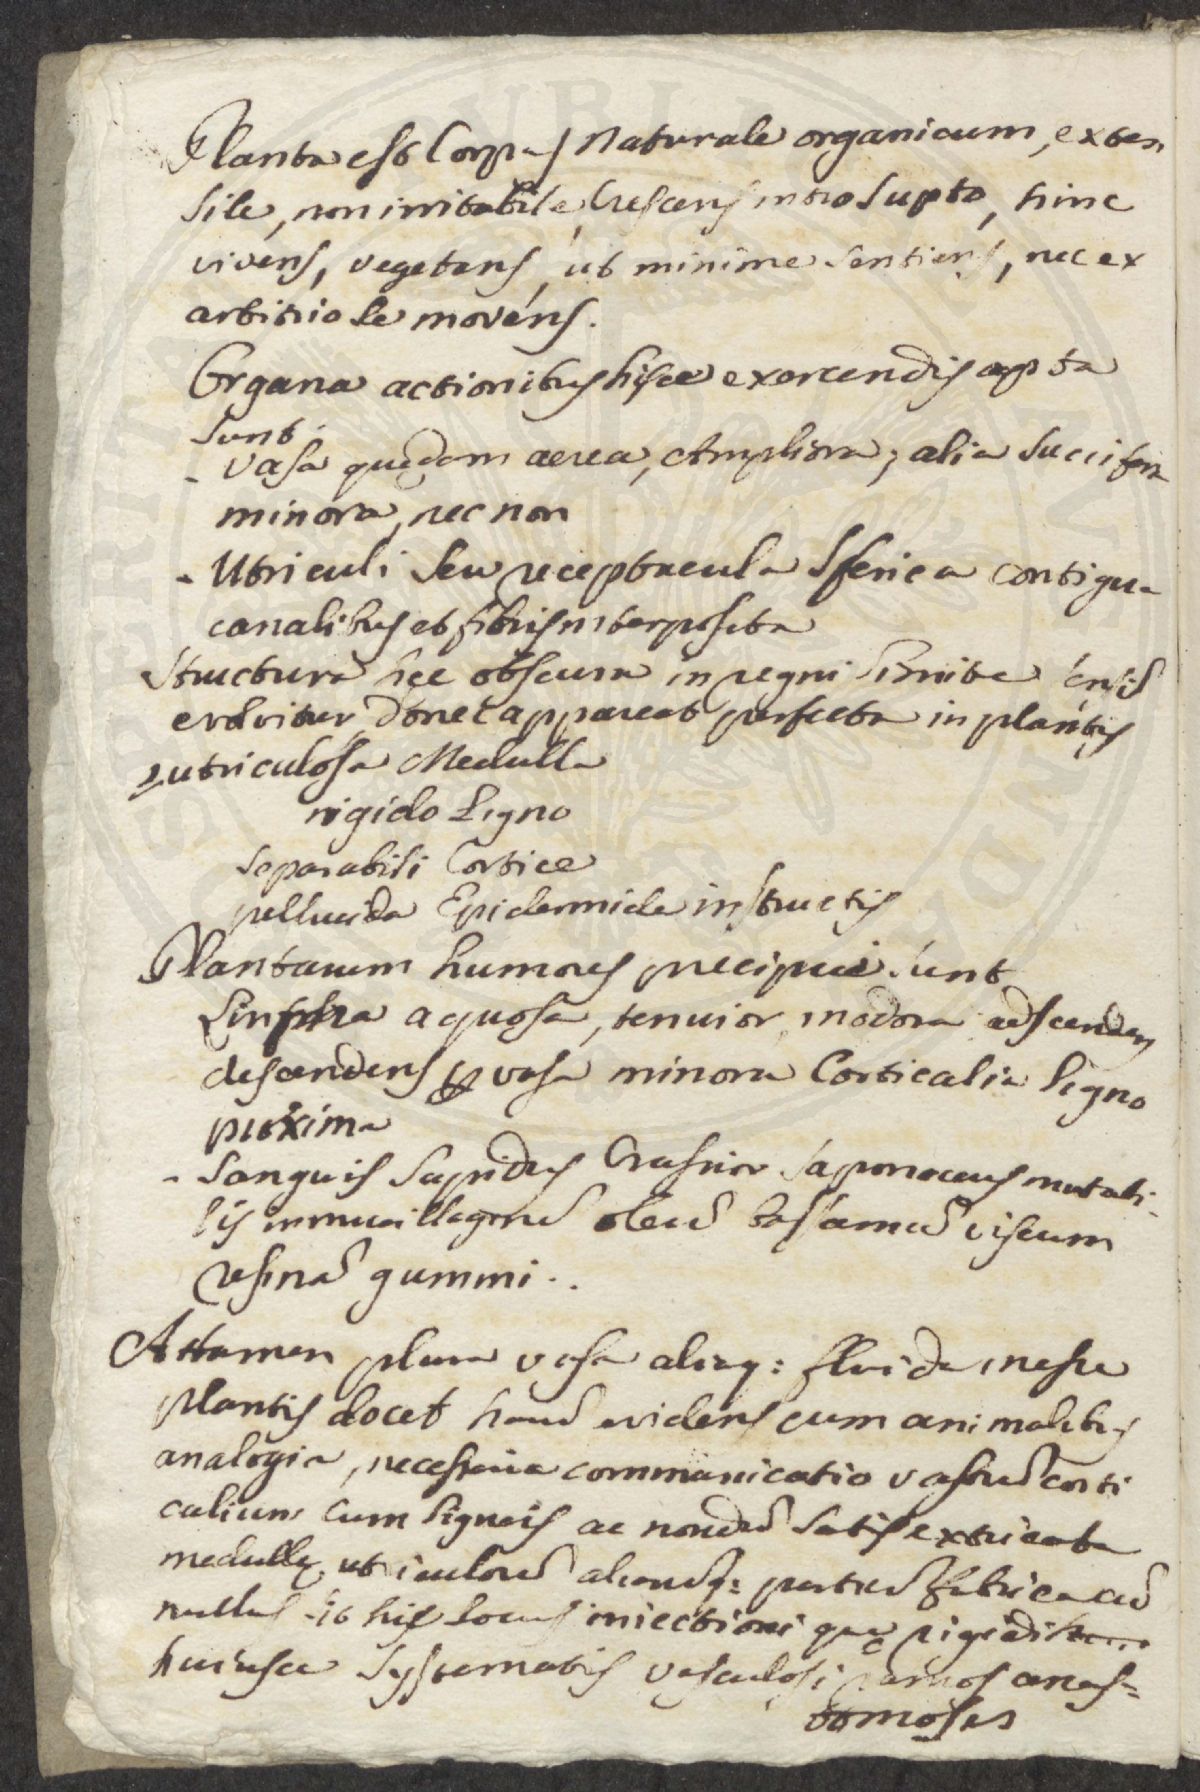 Planta est Corpus naturale organicum, exten
sile, non irritabile, Crescens intro sūpto, hinc
vivens, vegetans, ut minime sentiens, nec ex
arbitrio se movens.
Organa actionibus hisce exercendis apta
sunt.
- Vasa quędam aerea, Ampliora; alia succifera
minora, nec non
- Utriculi seu receptacula sferica contigua
canalibus et fibris interposita
Structura hec obscura in regni limite
evolvitur, donec appareat perfecta in plantis
utriculosa Medulla
rigido Ligno
separabili Cortice
pellucida Epidermide instructis
Plantarum humores precipui sunt
Linpha aquosa, tenuior inodora adscendens
descendens vasa minora Corticalia ligno
proxima
- Sanguis sapidus Crassior saponaceus mutabi-
lis in mucillaginē oleū balsamū viscum
resinā gummi..
Attamen plura vasa aliaq: fluida inesse
plantis docet haud evidens cum animalibus
analogia, necessaria communicatio vasorū corti
calium cum ligneis ac nondū satis extricata
medullę utriculorū aliarūq: partiū fabrica cū
nullus sit hic locus iniectioni quę rigidi
huiusce systematis vasculosi ramos anas=
tomoses